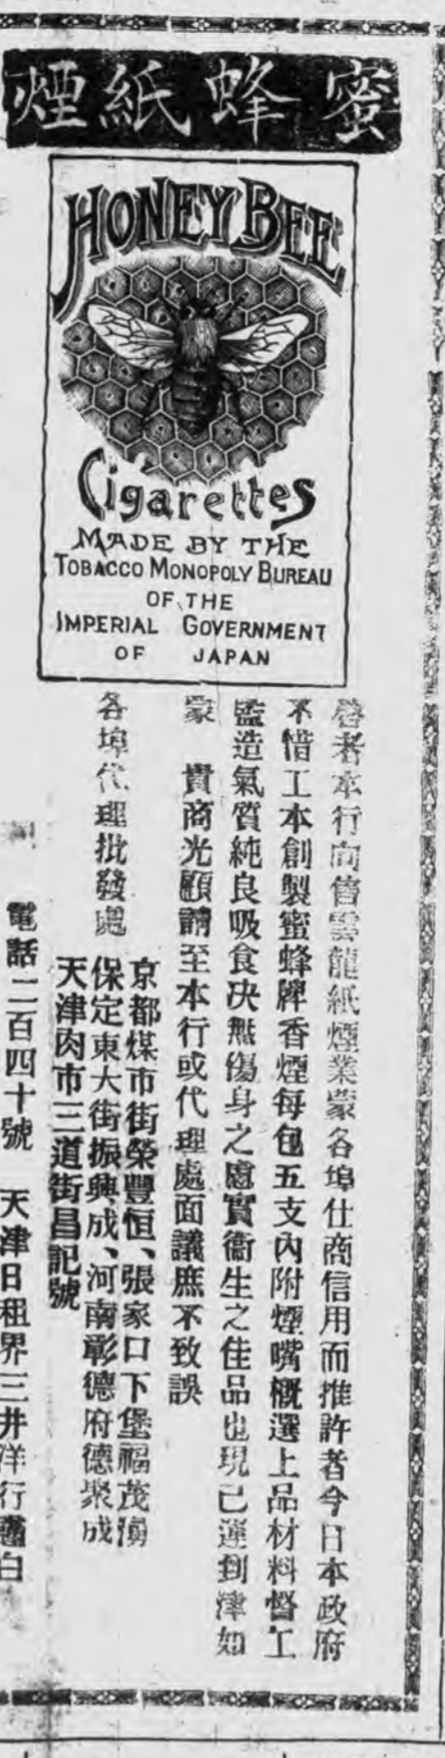 蜜蜂紙煙
HONEY BEE
Cigarettes
MADE BY THE
TOBACCO MONOPOLY BUREAU
OF THE
IMPERIAL GOVERNMENT
OF JAPAN
啓者本行向售雲龍紙煙業蒙各埠仕商信用而推許者今日本政府
不惜工本創製蜜蜂牌香煙每包五支內附煙嘴概選上品材料督工
監造氣質純良吸食决無傷身之慮實衞生之佳品也現已運到津如
蒙　貴商光顧請至本行或代理處面議庶不致誤
各埠代理批發處
京都煤市街榮豐恒、張家口下堡福茂
保定東大街振興成、河南彰德府德聚成
天津肉市三道街昌記號
電話二百四十號　天津日租界三井洋行謹白